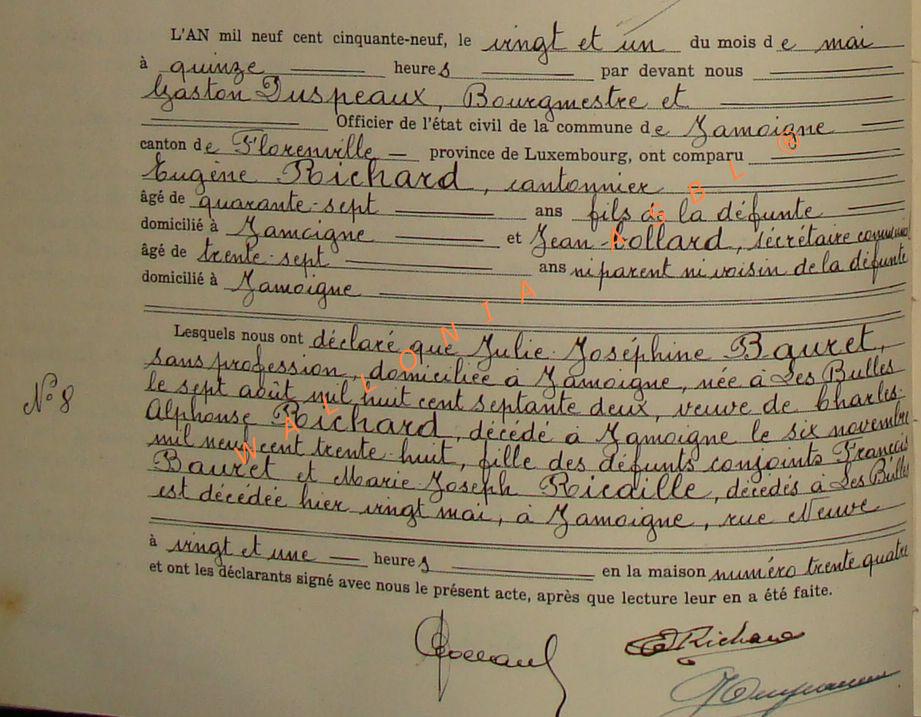 L'AN mil neuf cent cinquante-neuf, le vingt et un du mois de mai
à quinze heures par devant nous
Gaston Duspeaux, Bourgmestre et
Officier de l'état civil de la commune de Jamoigne
canton de Florenville province de Luxembourg, ont comparu
Eugène Richard, cantonnier
âgé de quarante-sept ans fils de la défunte
domicilié à Jamoigne et Jean Collard, secrétaire communal
âgé de trente-sept ans ni parent ni voisin de la défunte
domicilié à Jamoigne
Lesquels nous ont déclaré que Julie-Joséphine Bauret,
sans profession, domiciliée à Jamoigne, née à Les Bulles
le sept août mil huit cent septante deux, veuve de Charles-
Nº 8
Alphonse Richard, décédé à Jamoigne le six novembre
mil neuf cent trente-huit, fille des défunts conjoints François
Bauret et Marie-Joseph Ricaille, décédés à Les Bulles
est décédée hier vingt mai, à Jamoigne, rue Neuve
à vingt et une heures en la maison numéro trente quatre
et ont les déclarants signé avec nous le présent acte, après que lecture leur en a été faite.
E Richard
WALLONIA AGBL ®